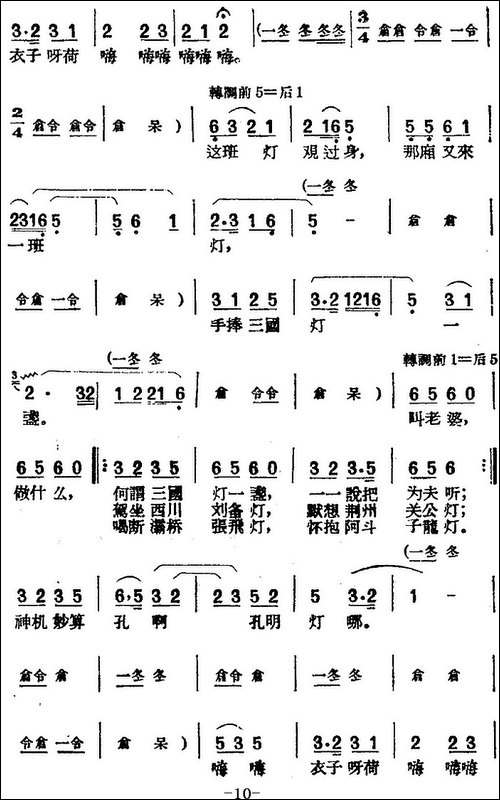 3·2 3 1 | 2 2 3 | 2 1 2 | (一冬 冬 冬冬 | 3/4 倉倉 令倉 一令 |
衣子 呀荷 嗨 嗨嗨 嗨嗨嗨。
轉調前5=后1
2/4 倉令 倉令 | 倉 呆 ) | 6 3 2 1 | 2 16 5 | 5 5 6 1 |
这班 灯 观过身, 那廂 又來
(一冬 冬
2316 5 | 5 6 1 | 2·3 1 6 | 5 - | 倉 倉 |
一班 灯,
令倉 一令 | 倉 呆 ) | 3 1 2 5 | 3·2 1216 | 5 3 1 |
手捧 三國 灯 一
(一冬 冬 轉調前1=后5
3 2· 32 | 1 2 21 6 | 倉 令令 | 倉 呆 ) | 6 5 6 0 |
盞。 叫老 婆,
6 5 6 0 | 3 2 3 5 | 6 5 6 5 | 3 2 3·5 | 6 5 6 |
做什 么, 何謂 三國 灯一 盞, 一一 說把 为夫 听;
駕坐 西川 刘备 灯, 默想 荆州 关公 灯;
喝断 灞桥 張飛 灯, 怀抱 阿斗 子龍 灯。
(一冬 冬
3 2 3 5 | 6,5 3 2 | 2 3 5 2 | 5 3·2 | 1 - |
神机 妙算 孔 啊 孔明 灯 哪。
倉令 倉 | 一冬 冬 | 倉令 倉 | 一冬 冬 | 倉 倉 |
令倉 一令 | 倉 呆 ) | 5 3 5 | 3·2 3 1 | 2 2 3 |
嗨 嗨 衣子 呀荷 嗨 嗨嗨
-10-